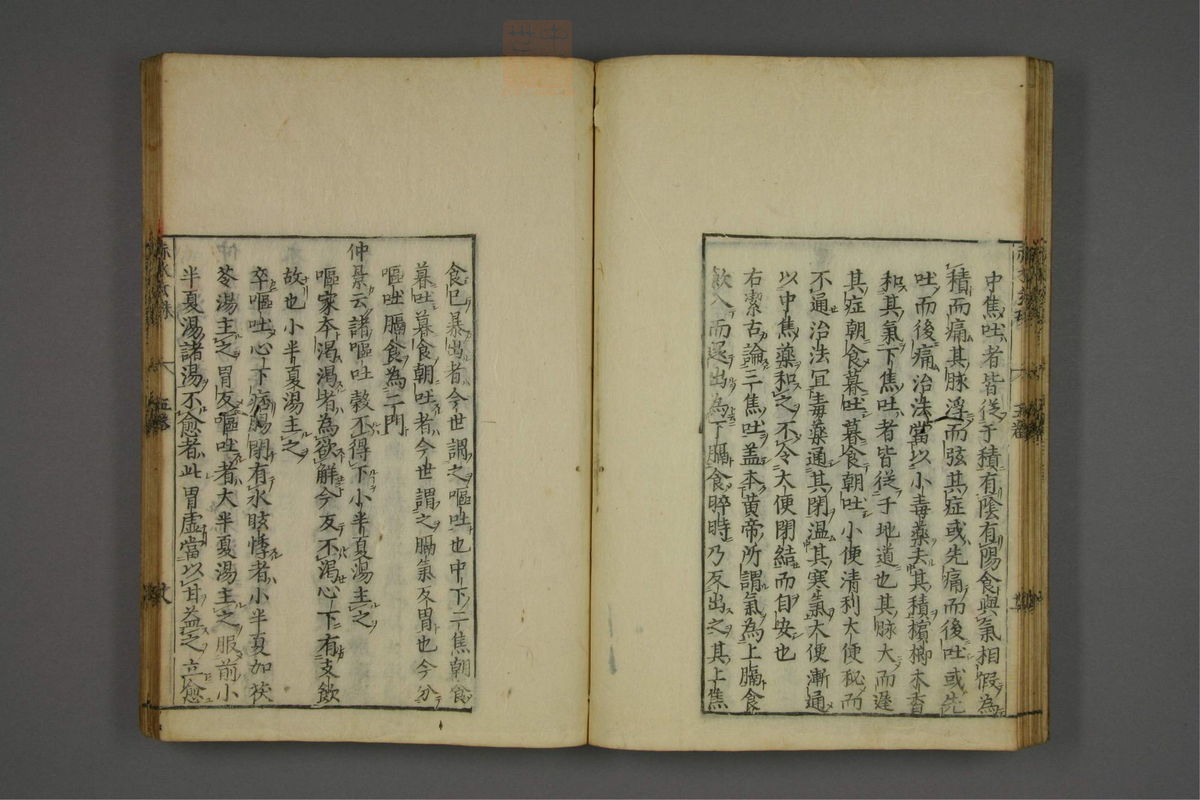 中焦吐者皆從于積有陰有陽食與氣相假為
積而痛其脉浮而弦其症或先痛而後吐或先
吐而後痛治法當以小毒藥去其積檳榔木香
和其氣下焦吐者皆從于地道也其脉大而遲
其症朝食暮吐暮食朝吐小便清利大便秘而
不通治法冝毒藥通其閉温其寒氣大便漸通
以中焦藥和之不令大便閉結而自安也
右潔古論三焦吐盖本黄帝所謂氣為上膈食
飲入而還出為下膈食晬時乃反出之其上焦
食已暴出者今世謂之嘔吐也中下二焦朝食
暮吐暮食朝吐者今世謂之膈氣反胃也今分
嘔吐膈食為二門
仲景云諸嘔吐穀不得下小半夏湯主之
嘔家本渴渴者為欲解今反不渴心下有支飲
故也小半夏湯主之
卒嘔吐心下痞膈閉有水眩悸者小半夏加茯
苓湯主之胃反嘔吐者大半夏湯主之服前小
半夏湯諸湯不愈者此胃虚當以甘益之立愈